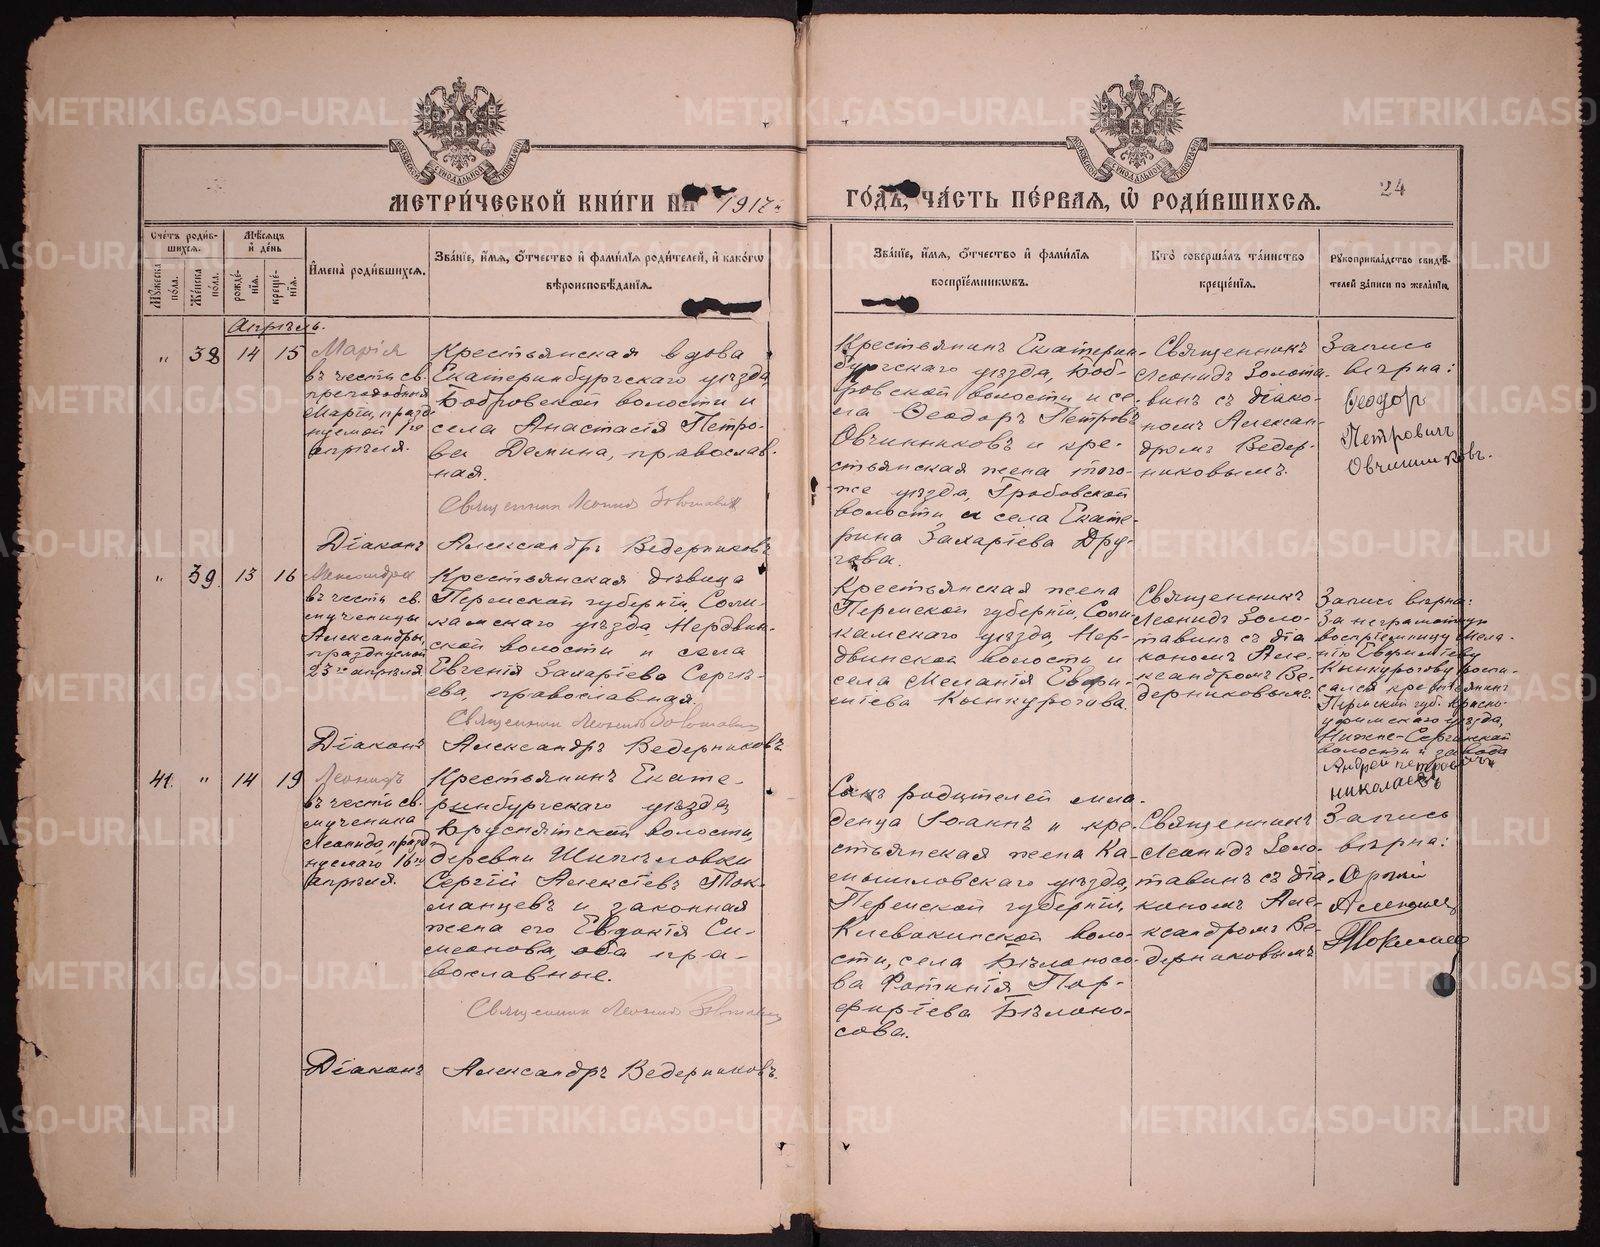 METRIKI.GASO-URAL.RU
МЕТРИ́ЧЕСКОЙ КНИ́ГИ НА 1917 ГО́ДЪ, ЧА́СТЬ ПЕ́РВАЯ, Ѡ РОДИ́ВШИХСЯ.
24
Сче́тъ роди́в-
шихся.
Мѣ́сяцъ
и́ де́нь
Му́жеска по́ла.
Же́нска по́ла.
рожде́-
нія.
креще́-
нія.
И́мена̀ роди́вшихся.
Зва́ніе, и́мя, о́тчество и́ фами́лія роди́телей, и́ како́гѡ
вѣроисповѣ́данія.
Зва́ніе, и́мя, о́тчество и́ фами́лія
воспріе́мниковъ.
Кто̀ соверша́лъ та́инство
креще́нія.
Рукоприкла́дство свидѣ́-
телей за́писи по жела́нію.
Апрѣль.
" 38 14 15
Марія
въ честь св.
преподобныя
Маріи, празд-
нуемой 1го
апрѣля.
Крестьянская вдова
Екатеринбургскаго уѣзда,
Бобровской волости и
села Анастасія Петро-
ва Демина, православ-
ная.
Священник Леонид Золотавин
Діаконъ Александръ Ведерниковъ
Крестьянинъ Екатерин-
бургскаго уѣзда, Боб-
ровской волости и се-
ла Ѳеодоръ Петровъ
Овчинниковъ и кре-
стьянская жена того-
же уѣзда, Грабовской
волости и села Екате-
рина Захаріева Дру-
гова.
Священникъ
Леонидъ Золота-
винъ съ діако-
номъ Алексан-
дромъ Ведер-
никовымъ.
Запись
вѣрна:
Ѳеодор
Петровичъ
Овчинниковъ.
" 39. 13 16
Александра
въ честь св.
мученицы
Александры,
празднуемой
23го апрѣля
Крестьянская дѣвица
Пермской губерніи, Соли-
камскаго уѣзда, Мердвин-
ской волости и села
Евгенія Захаріева Сергѣ-
ева, православная.
Священник Леонид Золотавин
Діаконъ Александръ Ведерниковъ
Крестьянская жена
Пермской губерніи, Соли-
камскаго уѣзда, Мер-
двинской волости и
села Меланія Евфи-
міева Кынкурогова.
Священникъ
Леонидъ Золо-
тавинъ съ діа-
кономъ Але-
ксандромъ Ве-
дерниковымъ.
Запись вѣрна:
За неграмотную
воспріемницу Мела-
нію Евфиміеву
Кынкурогову роспи-
сался крестьянинъ
Пермской губ. Красно-
уфимскаго уѣзда,
Нижне-Сергинской
волости и завода
Андрей Петровичъ
николаевъ
41. " 14 19
Леонидъ
въ честь св.
мученика
Леонида, празд-
нуемаго 16го
апрѣля.
Крестьянинъ Екате-
ринбургскаго уѣзда,
Бруснятской волости,
деревни Шипѣловки
Сергій Алексіевъ Ток-
манцевъ и законная
жена его Евдокія Си-
меонова, оба пра-
вославные.
Священник Леонид Золотавин
Діаконъ Александръ Ведерниковъ.
Сынъ родителей мла-
денца Іоаннъ и кре-
стьянская жена Ка-
мышловскаго уѣзда,
Пермской губерніи,
Клевакинской воло-
сти, села Бѣлоносо-
ва Фотинія Пор-
фиріева Бѣлоно-
сова.
Священникъ
Леонидъ Золо-
тавинъ съ діа-
кономъ Але-
ксандромъ Ве-
дерниковымъ
Запись
вѣрна: